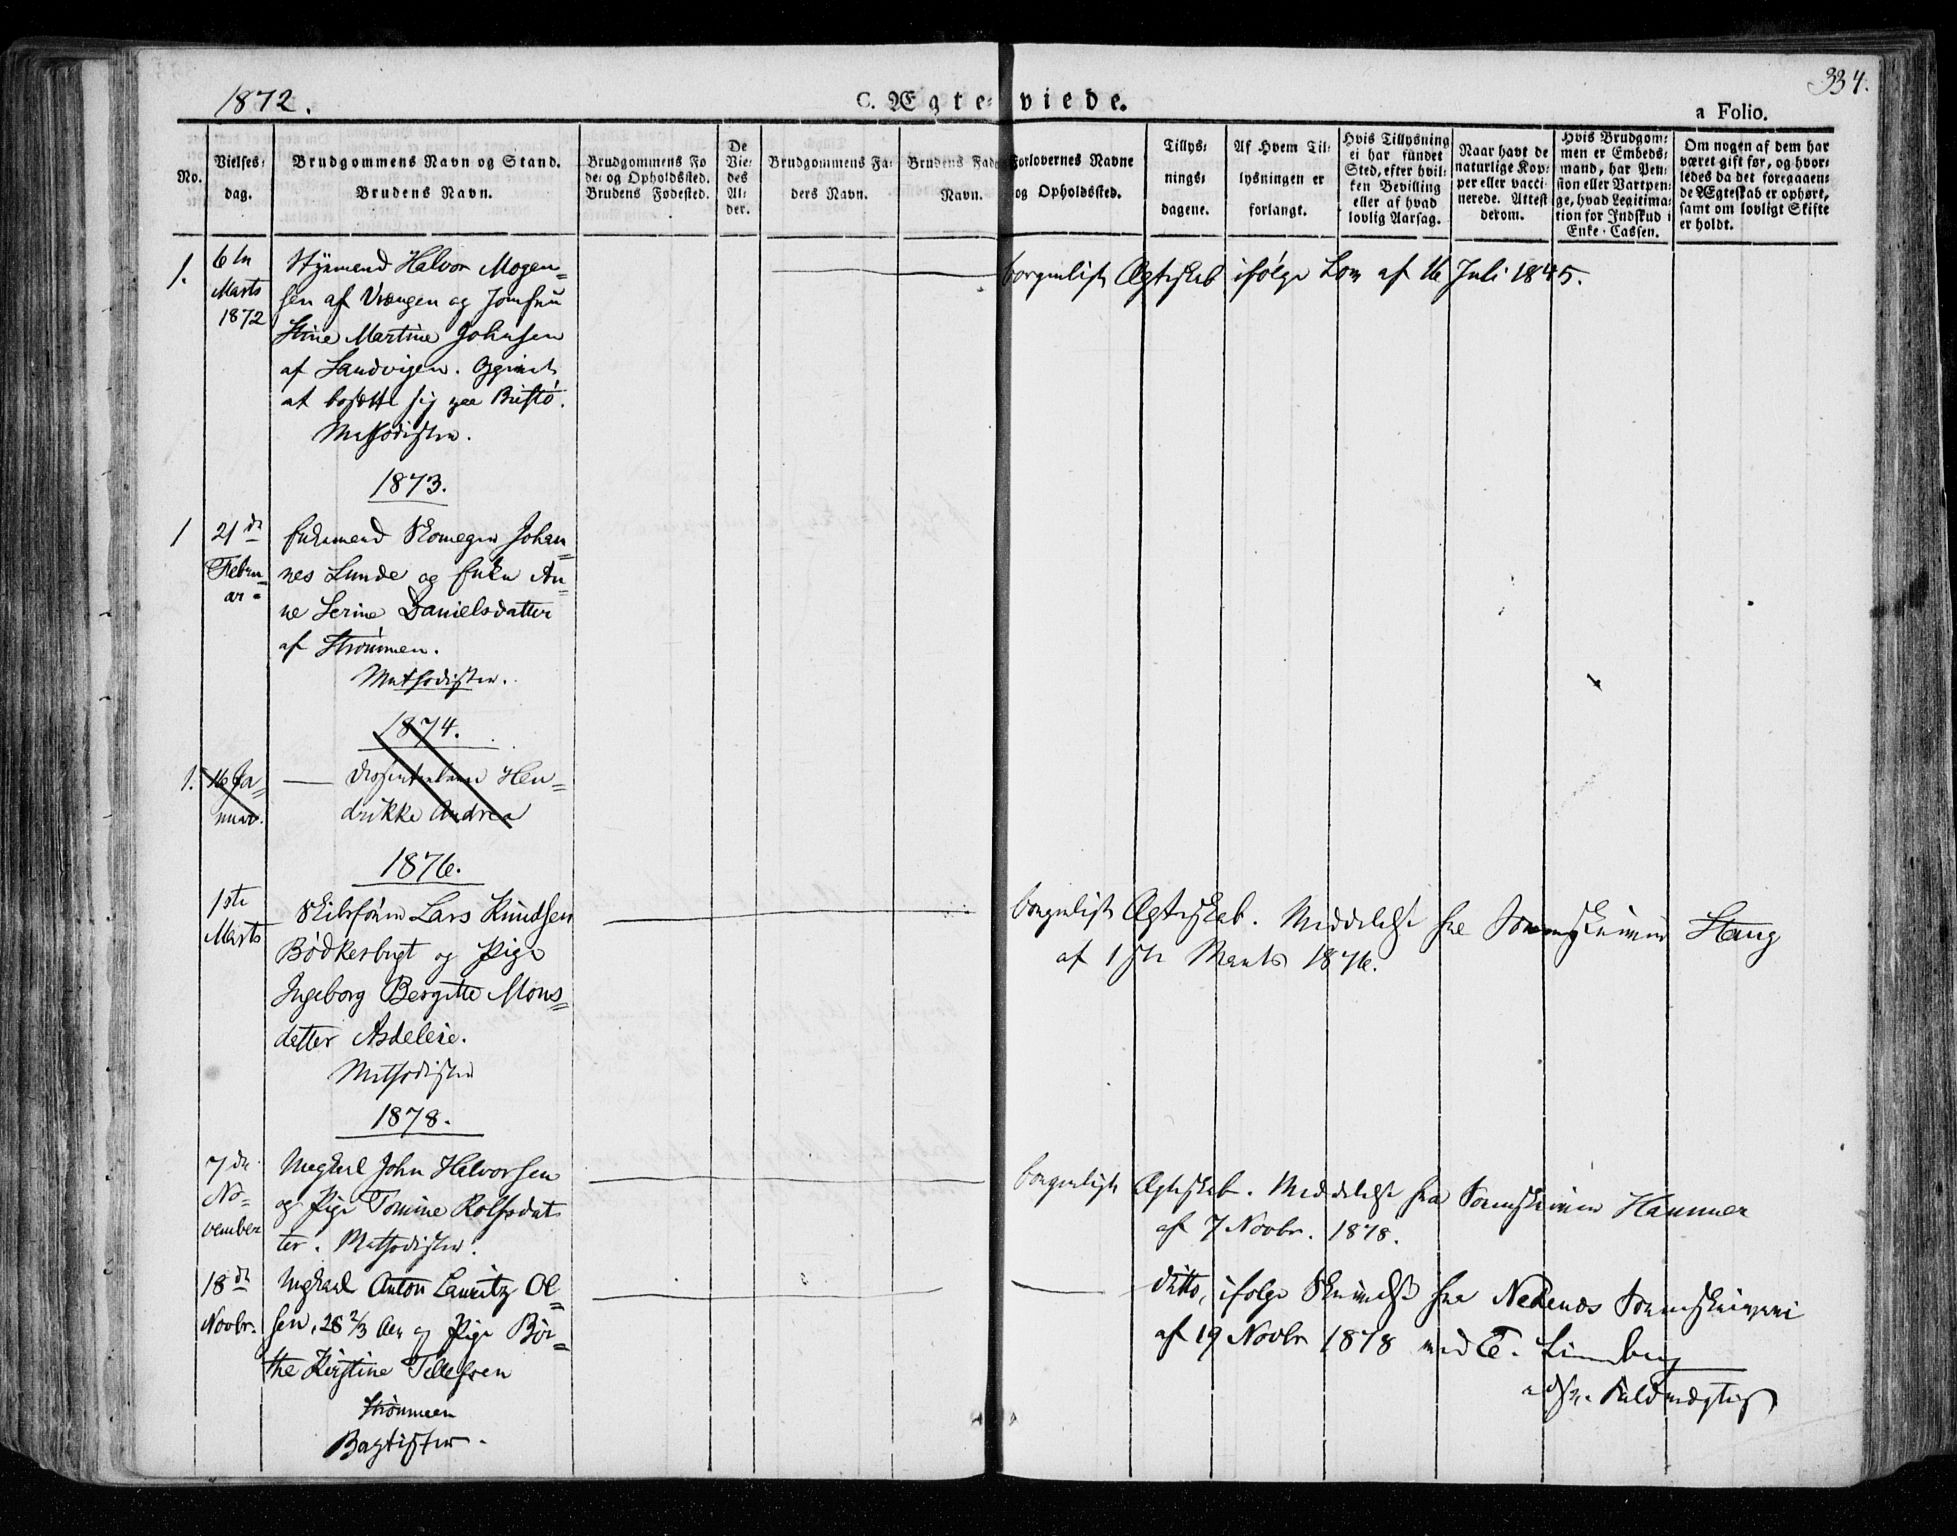 1872.
C. Ægteviede.
334.
a Folio.
No.
Vielses-
dag.
Brudgommens Navn og Stand.
Brudens Navn.
Brudgommens Fø
de- og Opholdssted.
Brudens Fødested.
De
Vie-
des
Al-
der.
Brudgommens Fa-
ders Navn.
Brudens Faders
Navn.
Forlovernes Navne
og Opholdssted.
Tillys-
nings-
dagene.
Af Hvem Til-
lysningen er
forlangt.
Hvis Tillysning
ei har fundet
Sted, efter hvil-
ken Bevilling
eller af hvad
lovlig Aarsag.
Naar havt de
naturlige Kop-
per eller vacci-
nerede. Attest
derom.
Hvis Brudgom-
men er Embeds-
mand, har Pen-
sion eller Vartpen-
ge, hvad Legitima-
tion for Indskud i
Enke-Cassen.
Om nogen af dem har
været gift før, og hvor-
ledes da det foregaaen-
de Ægteskab er ophørt,
samt om lovligt Skifte
er holdt.
1.
6te
Marts
1872
Styrmand Halvor Mogen-
sen af Vrengen og Jomfru
Stine Martine Johnsen
af Sandvigen.
at bosætte sig paa
Methodister.
borgerligt Ægteskab ifølge Lov af 16 Juli 1845.
1873.
1
21de
Febru-
ar
Enkemand Skomager Johan-
nes Lunde og Enke An-
ne Serine Danielsdatter
af Strømmen.
Methodister.
1874.
1.
16 Ja-
nuar.
Hen-
drikke Andrea
1876.
1ste
Marts
Skibsfører Lars Knudsen
Bödkerbugt og Pige
Ingeborg Bergitte Mons-
datter Asdeleie.
Methodister
borgerligt Ægteskab. Meddelelse fra Sorenskriver Stang
af 1ste Marts 1876.
1878.
7de
No-
vember
Ungkarl John Halvorsen
og Pige Tomine Rolfsdat
ter. Methodister.
borgerligt Ægteskab. Meddelelse fra Sorenskriver Hammer
af 7 Novbr. 1878.
18de
Novbr.
Ungkarl Anton Lauritz Ol-
sen, 28 2/3 Aar og Pige Bør-
the Kirstine Tellefsen
Strømmen
Baptister.
ditto, ifølge Skrivelse fra Nedenæs Sorenskriveri
af 19 Novbr 1878 ved
Fuldmægtig